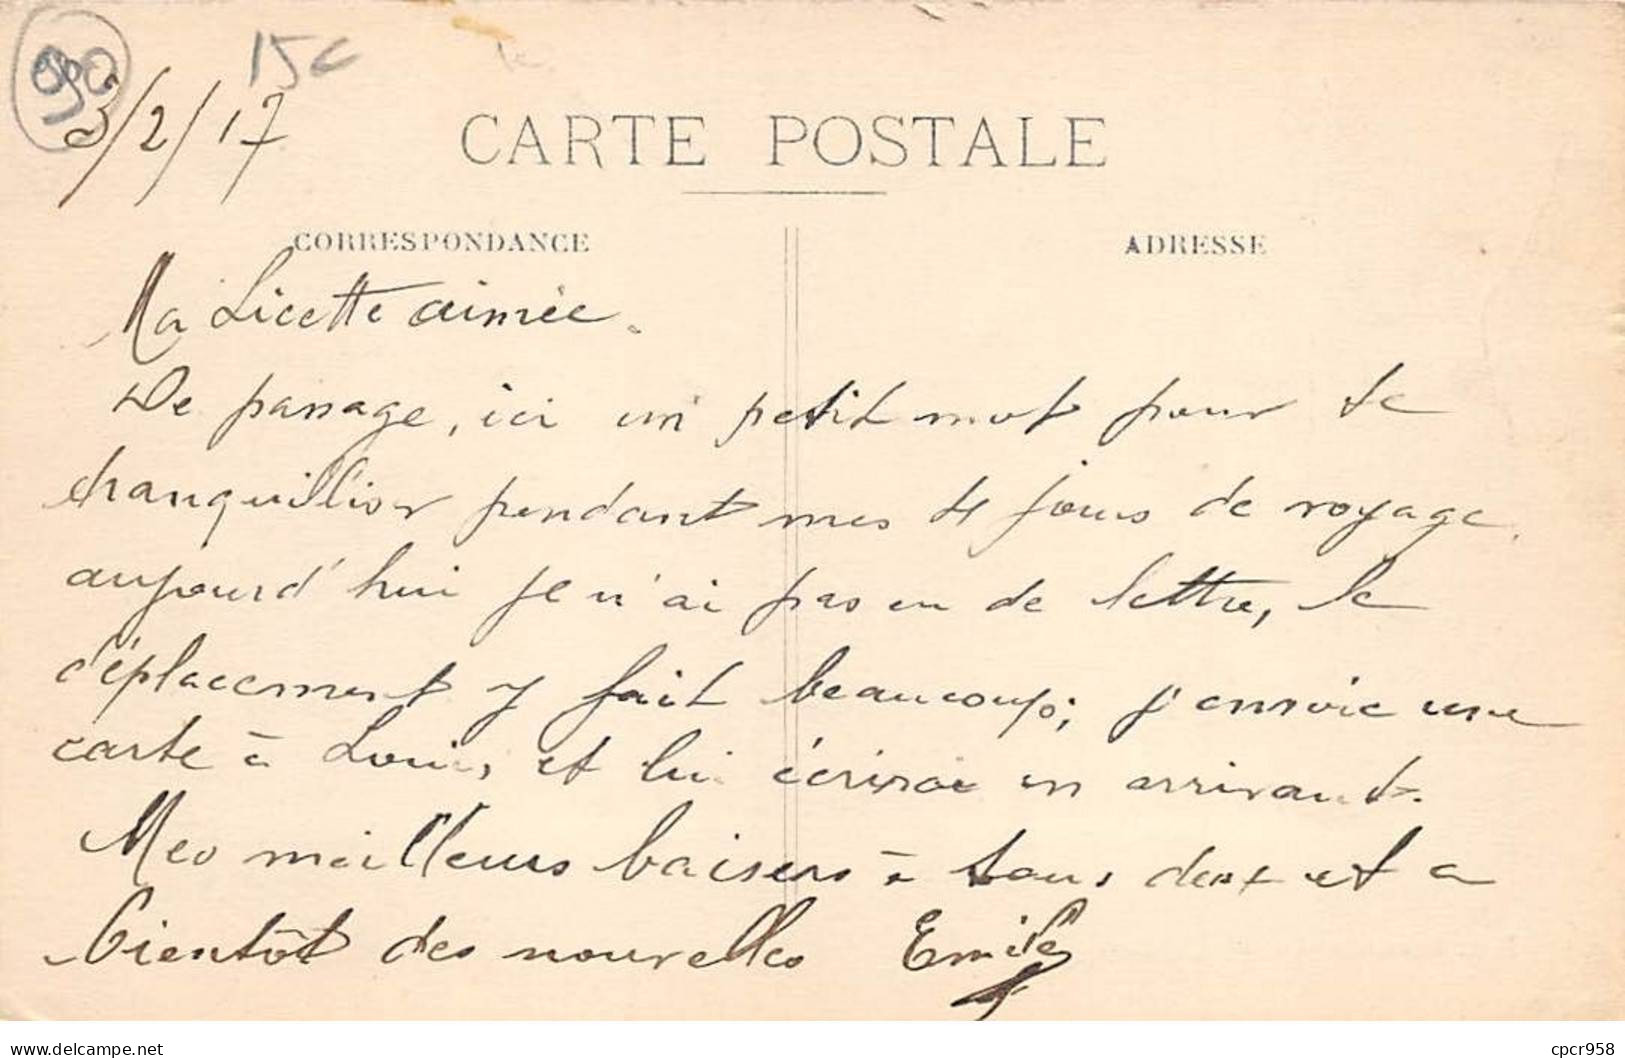 090
15c
3/2/17
CARTE POSTALE
CORRESPONDANCE
ADRESSE
Ma Licette aimée.
De passage, ici un petit mot pour te
tranquilliser pendant mes 4 jours de voyage,
aujourd'hui je n'ai pas eu de lettre, le
déplacement y fait beaucoup; j'envoie une
carte à Louis, et lui écrirai en arrivant.
Mes meilleurs baisers à tous deux et a
bientôt des nouvelles Emile
delcampe.net
cpcr958